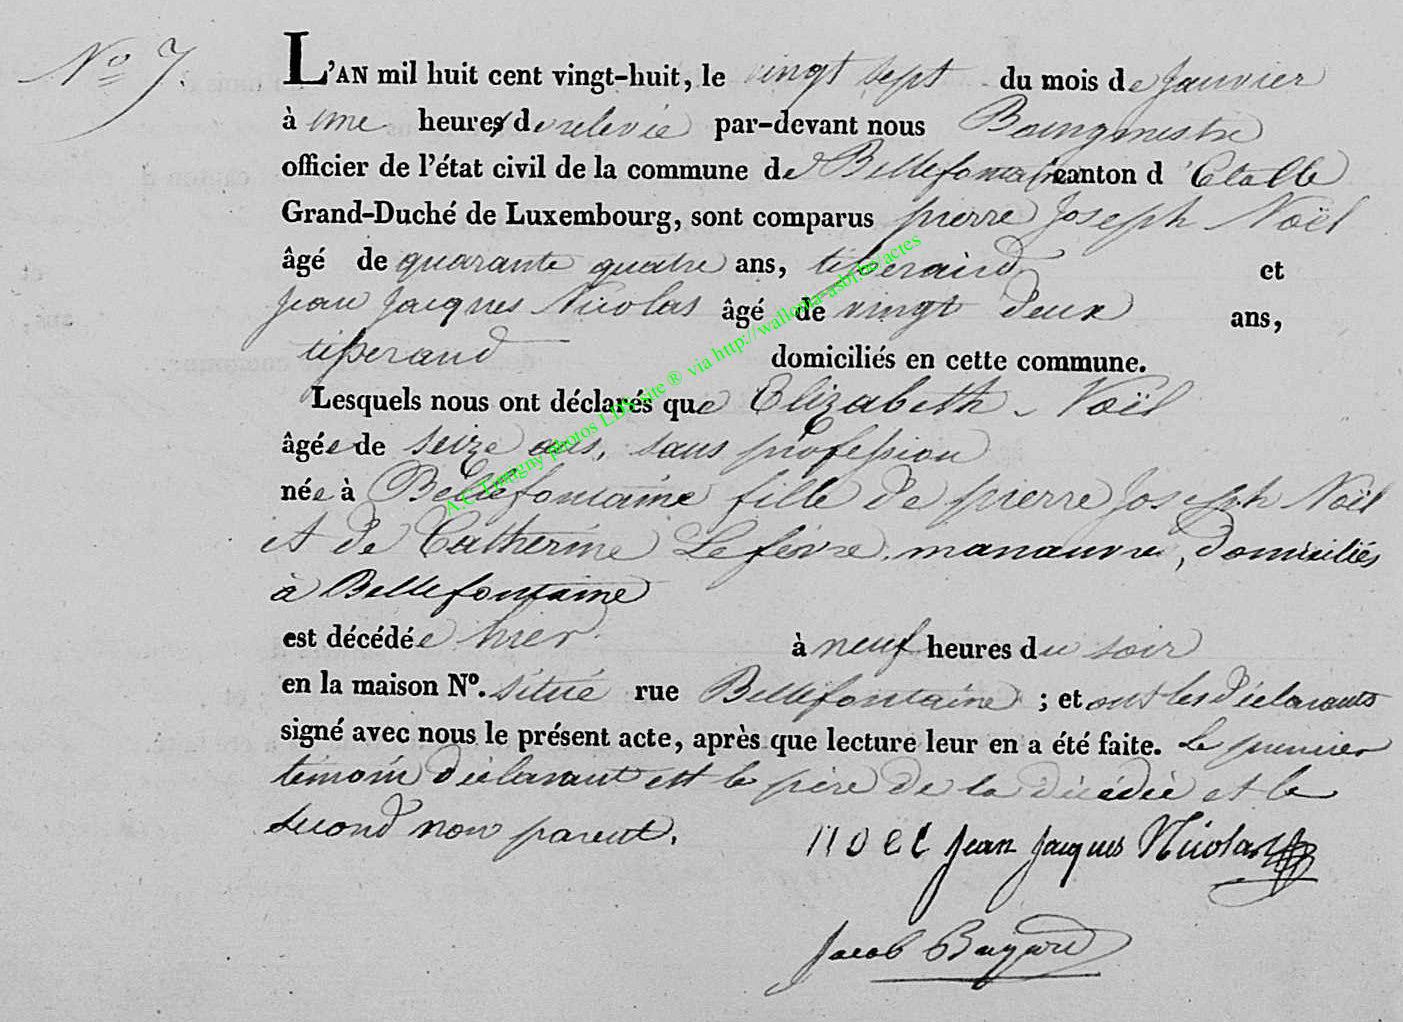 No 7.
L'AN mil huit cent vingt-huit, le vingt sept du mois de janvier
à une heures de relevée par-devant nous Bourgmestre
officier de l'état civil de la commune de Bellefontaine canton d'Etalle
Grand-Duché de Luxembourg, sont comparus pierre Joseph Noël
âgé de quarante quatre ans, tisserand et
jean jacques Nicolas âgé de vingt deux ans,
tisserand domiciliés en cette commune.
Lesquels nous ont déclarés que Elizabeth Noël
âgée de seize ans, sans profession
née à Bellefontaine fille de pierre Joseph Noël
et de Catherine Lefèvre, manœuvre, domiciliés
à Bellefontaine
est décédée hier à neuf heures du soir
en la maison No. situé rue Bellefontaine ; et ont les déclarants
signé avec nous le présent acte, après que lecture leur en a été faite. Le premier
témoin déclarant est le père de la décédée et le
second non parent.
noel jean jacques Nicolas
Jacob Bayard
A.C.Tintigny photos LDS site ® via http://wallonia-asbl.be/actes